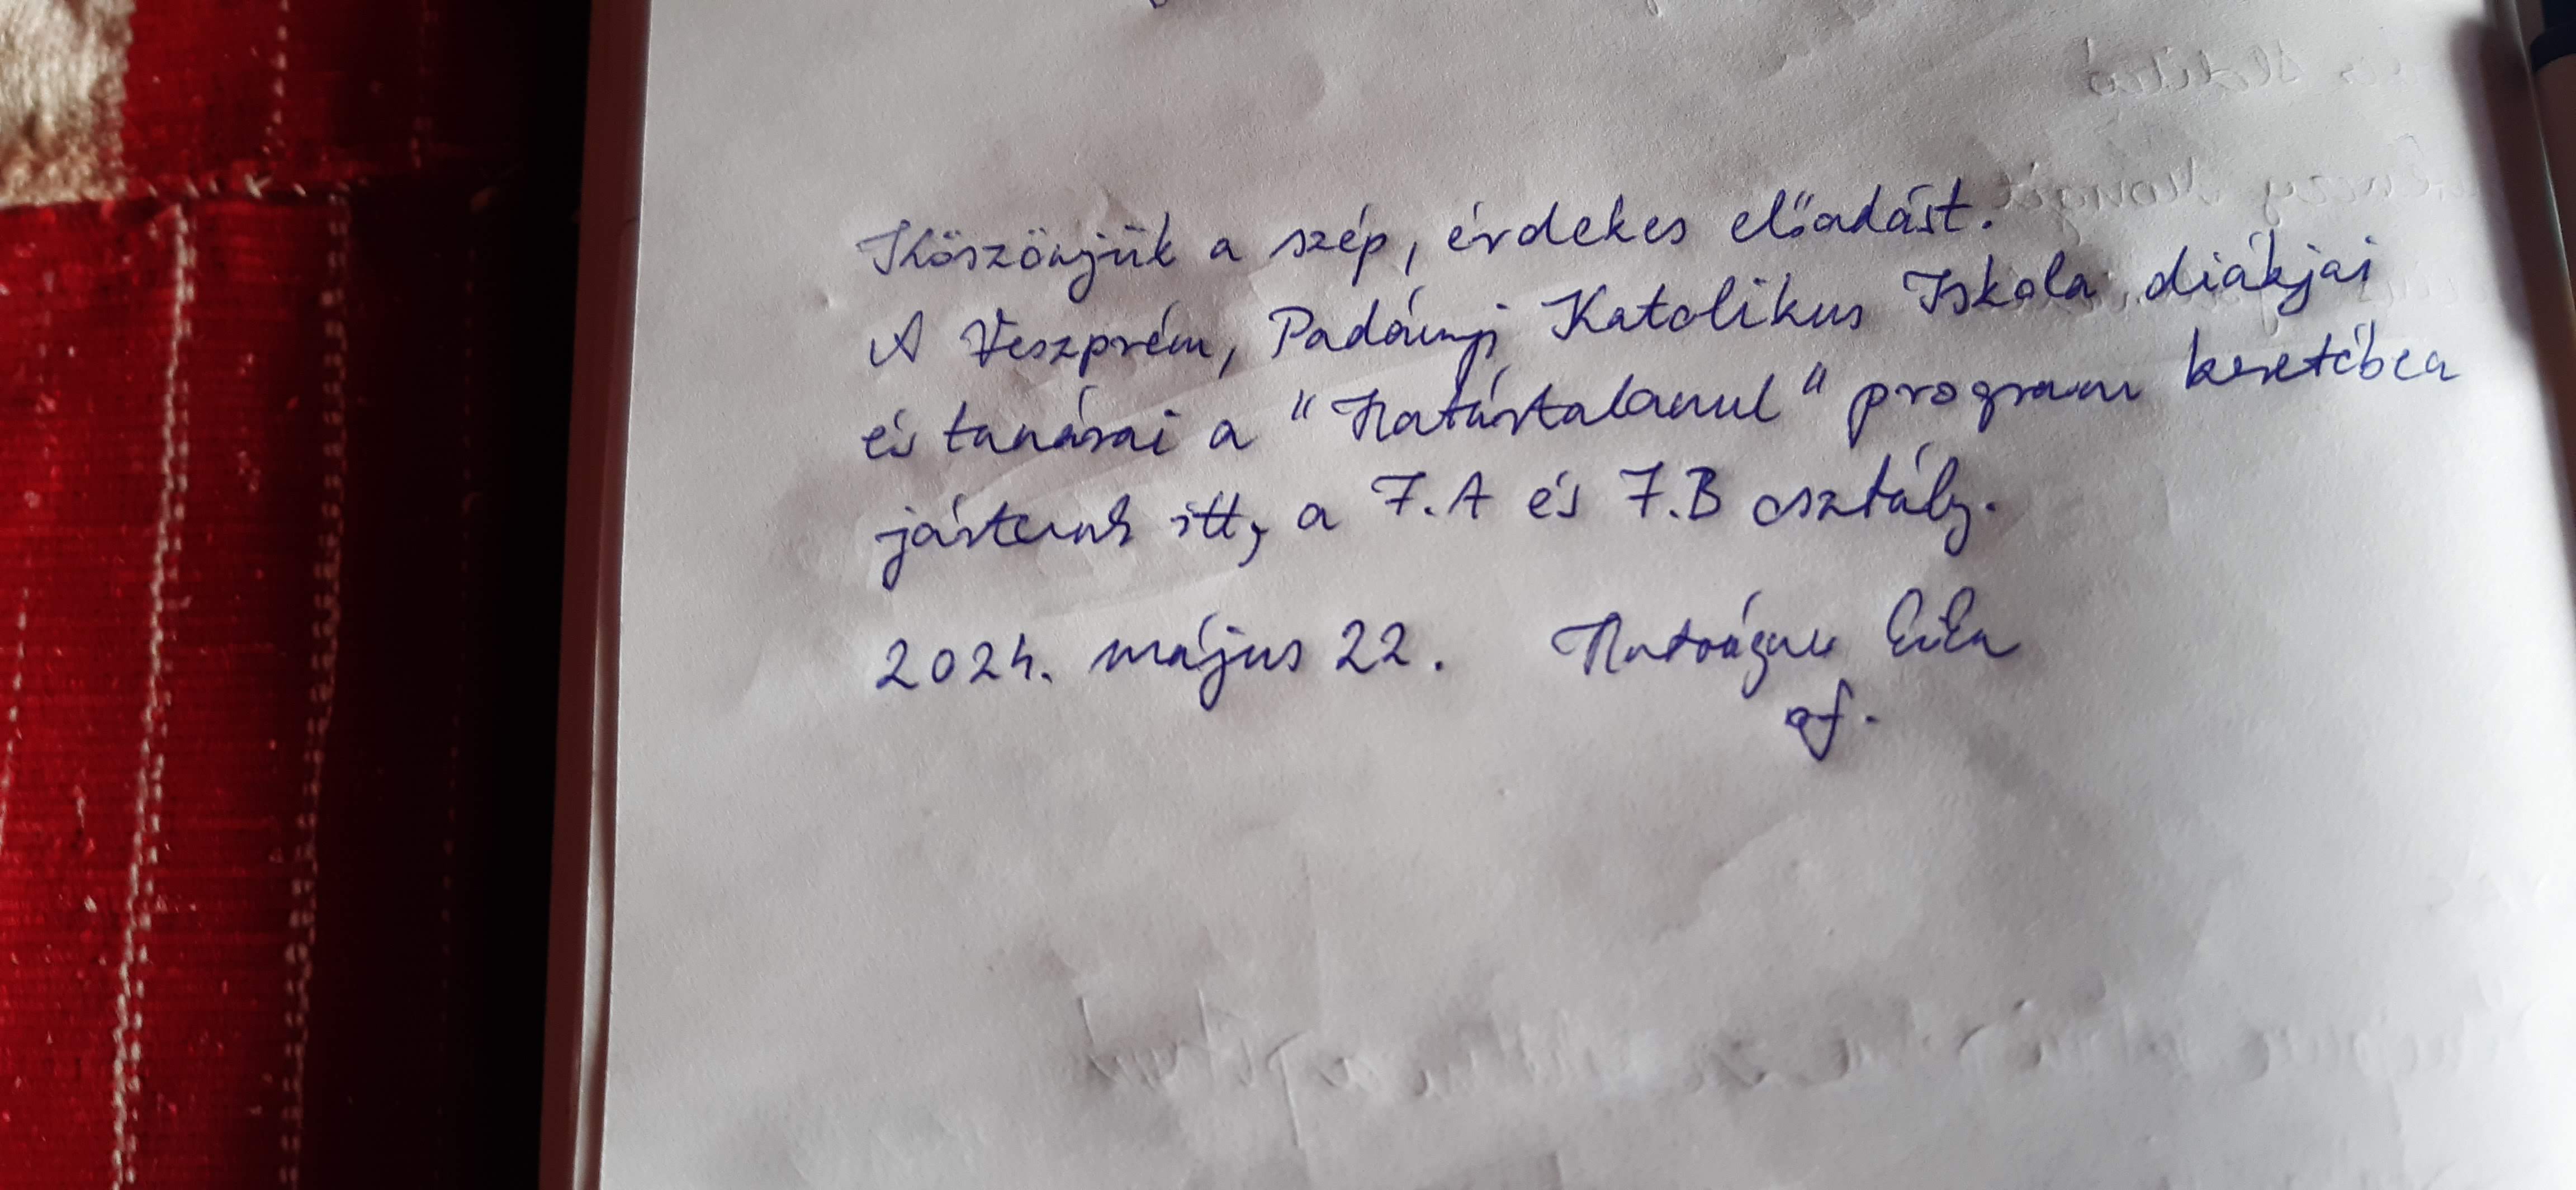 Köszönjük a szép, érdekes előadást.
A Veszprém, Padányi Katolikus Iskola diákjai
és tanárai a "Határtalanul" program keretében
jártunk itt, a 7.A és 7.B osztály.
2024. május 22.
of.